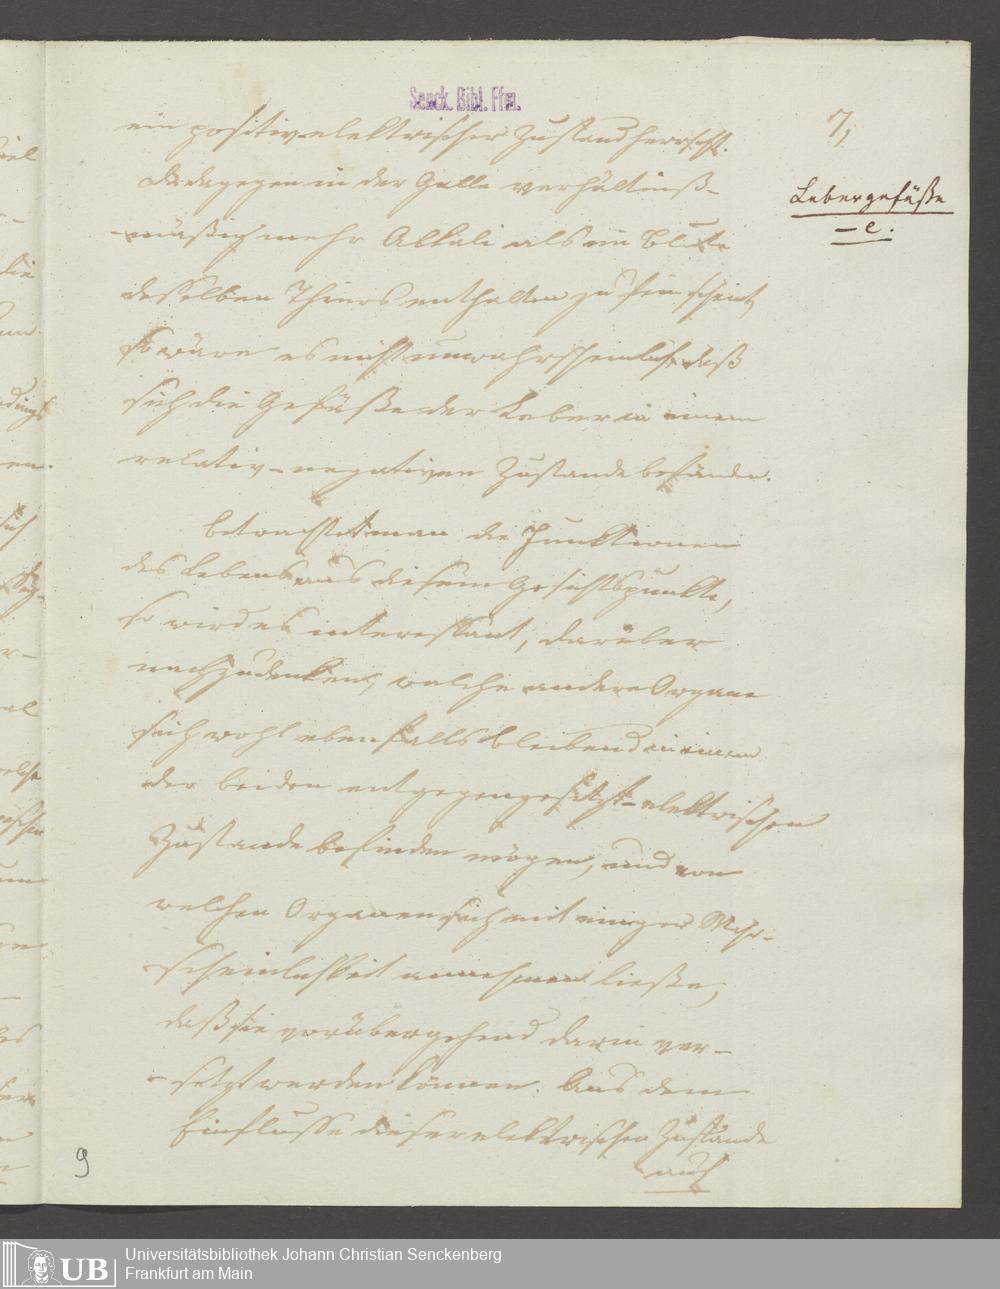 Senck. Bibl. Ffm.
7,
ein positiv-elektrischer Zustand herrscht.
Da dagegen in der Galle verhältniß-
-mäßig mehr Alkali als im Blute
desselben Thiers enthalten zu sein scheint,
so wäre es nicht unwahrscheinlich, daß
sich die Gefäße der Leber in einem
relativ-negativen Zustande befänden.
Lebergefäße
– e.
Betrachtet man die Funktionen
des Lebens aus diesem Gesichtspunkte,
so wird es interessant, darüber
nachzudenken, welche andere Organe
sich wohl ebenfalls bleibend in einem
der beiden entgegengesetzt-elektrischen
Zustande befinden mögen, und von
welchen Organen sich mit einiger Wahr-
scheinlichkeit annehmen ließe,
daß sie vorübergehend darin ver-
-setzt werden können. Aus dem
Einflusse dieser elektrischen Zustände
auch
9
UB
Universitätsbibliothek Johann Christian Senckenberg
Frankfurt am Main